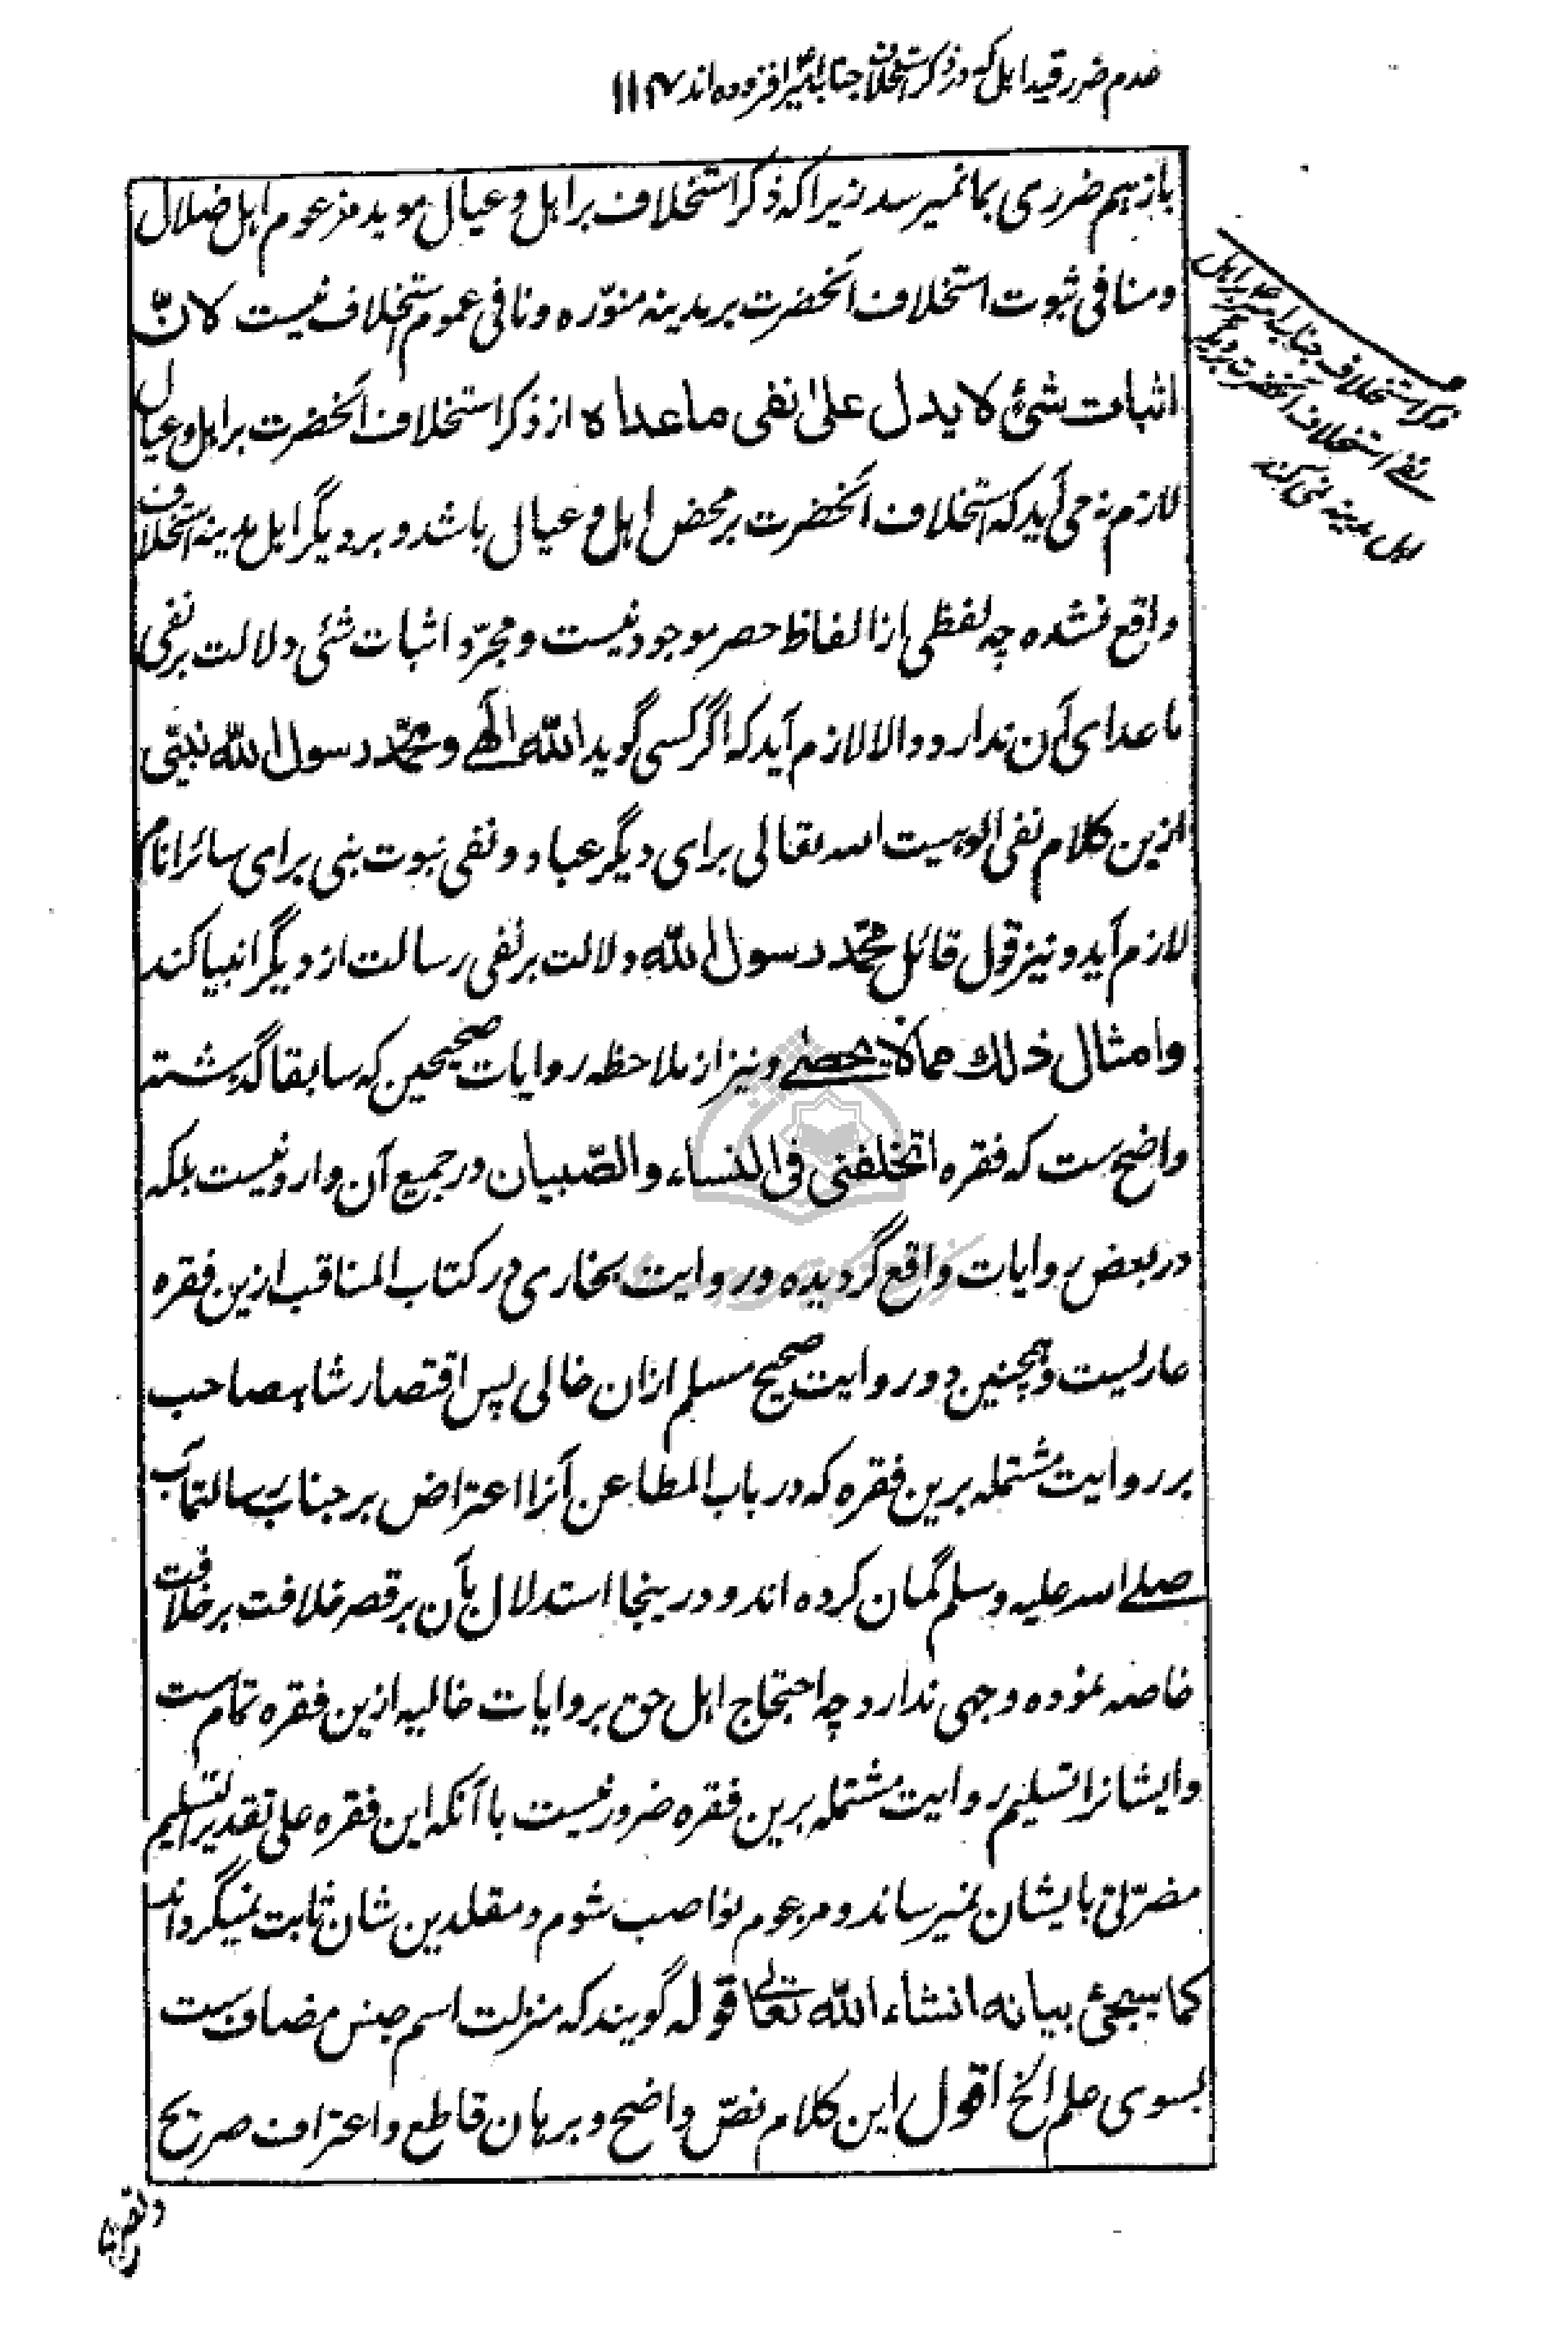 عدم ضرر قید اهل که در ذکر استخلاف جناب امیر افزوده اند ۱۱۴
باز هم ضرری بما نمیرسد زیرا که ذکر استخلاف بر اهل و عیال موید مزعوم اهل ضلال
و منافی ثبوت استخلاف آنحضرت بر مدینه منوّره و نافی عموم استخلاف نیست لانّ
اثبات شیٔ لا یدل علیٰ نفی ما عداه از ذکر استخلاف آنحضرت بر اهل و عیال
لازم نمی آید که استخلاف آنحضرت بر محض اهل و عیال باشد و بر دیگر اهل مدینه استخلاف
واقع نشده چه لفظی از الفاظ حصر موجود نیست و مجرّد اثبات شئی دلالت بر نفی
ما عدای آن ندارد و الا لازم آید که اگر کسی گوید الله الٰهی و محمّد رسول الله نبیّی
ازین کلام نفی الوهیت الله تعالی برای دیگر عباد و نفی نبوت نبی برای سائر انام
لازم آید و نیز قول قائل محمّد رسول الله دلالت بر نفی رسالت از دیگر انبیا کند
وامثال ذلك مما لا یحصٰی و نیز از ملاحظه روایات صحیحین که سابقا گذشته
واضحست که فقره اتخلفنی فی النساء والصّبیان در جمیع آن وارد نیست بلکه
در بعض روایات واقع گردیده و روایت بخاری در کتاب المناقب ازین فقره
عاریست و همچنین دو روایت صحیح مسلم ازان خالی پس اقتصار شاهصاحب
بر روایت مشتمله برین فقره که در باب المطاعن آنرا اعتراض بر جناب رسالتمآب
صلے الله علیه وسلم گمان کرده اند و درینجا استدلال بآن بر قصر خلافت بر خلافت
خاصه نموده وجهی ندارد چه احتجاج اهل حق بروایات خالیه ازین فقره تمامست
و ایشانرا تسلیم روایت مشتمله برین فقره ضرور نیست با آنکه این فقره علی تقدیر التسلیم
مضرّتی بایشان نمیرساند و مزعوم نواصب شوم و مقلدین شان ثابت نمیگرداند
کما سیجیٔ بیانه انشاء الله تعالیٰ قوله گویند که منزلت اسم جنس مضافست
بسوی علم الخ اقول این کلام نصّ واضح و برهان قاطع و اعتراف صریح
ذکر استخلاف جناب امیر بر اهل
نفی استخلاف آنحضرت بر دیگر
اهل مدینه نمی کند